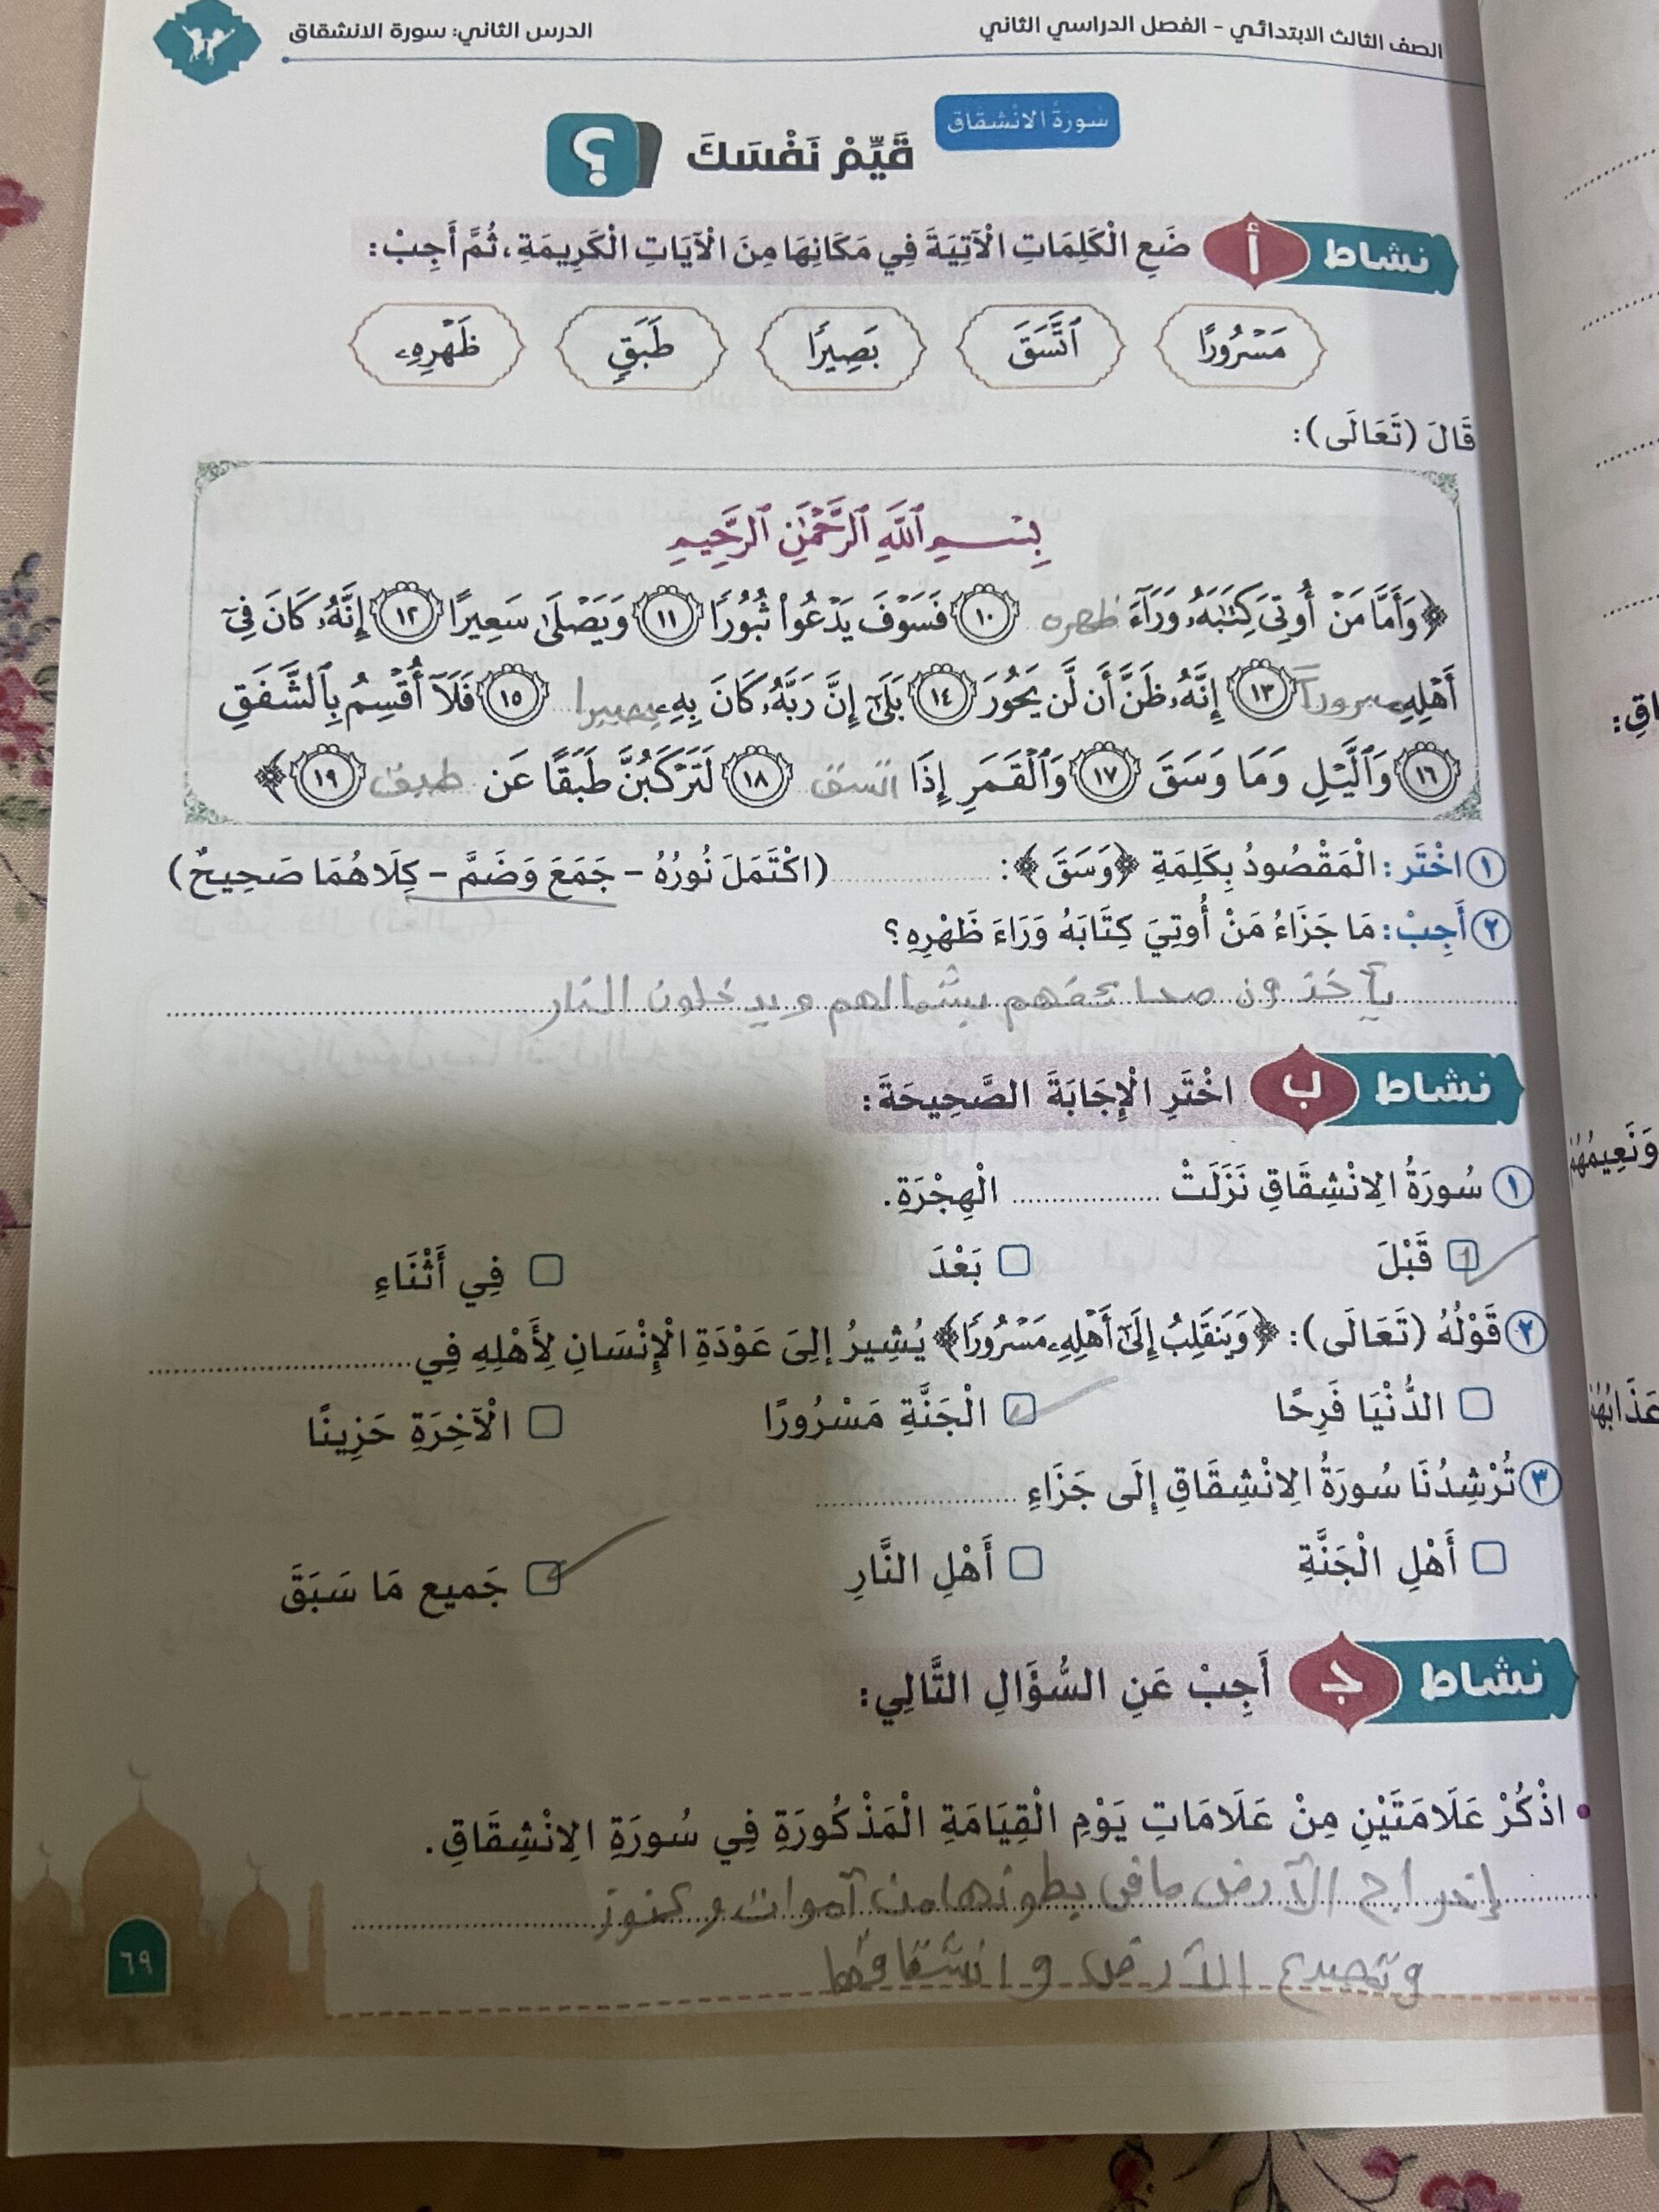 الصف الثالث الابتدائي - الفصل الدراسي الثاني
الدرس الثاني: سورة الانشقاق
سورة الانشقاق
قَيِّمْ نَفْسَكَ ؟
نشاط أ ضَعِ الْكَلِمَاتِ الْآتِيَةَ فِي مَكَانِهَا مِنَ الْآيَاتِ الْكَرِيمَةِ، ثُمَّ أَجِبْ:
مَسْرُورًا ٱتَّسَقَ بَصِيرًا طَبَقٍ ظَهْرِهِۦ
قَالَ (تَعَالَى):
بِسْمِ ٱللَّهِ ٱلرَّحْمَٰنِ ٱلرَّحِيمِ
﴿وَأَمَّا مَنْ أُوتِىَ كِتَٰبَهُۥ وَرَآءَ ظهره ١٠ فَسَوْفَ يَدْعُوا۟ ثُبُورًا ١١ وَيَصْلَىٰ سَعِيرًا ١٢ إِنَّهُۥ كَانَ فِىٓ
أَهْلِهِۦ مسرورا ١٣ إِنَّهُۥ ظَنَّ أَن لَّن يَحُورَ ١٤ بَلَىٰٓ إِنَّ رَبَّهُۥ كَانَ بِهِۦ بصيرا ١٥ فَلَآ أُقْسِمُ بِٱلشَّفَقِ
١٦ وَٱلَّيْلِ وَمَا وَسَقَ ١٧ وَٱلْقَمَرِ إِذَا اتسق ١٨ لَتَرْكَبُنَّ طَبَقًا عَن طبق ١٩﴾
١ اخْتَر: الْمَقْصُودُ بِكَلِمَةِ ﴿وَسَقَ﴾: .................. (اكْتَمَلَ نُورُهُ - جَمَعَ وَضَمَّ - كِلَاهُمَا صَحِيحٌ)
٢ أَجِبْ: مَا جَزَاءُ مَنْ أُوتِيَ كِتَابَهُ وَرَاءَ ظَهْرِهِ؟
يأخذون صحائفهم بشمالهم ويدخلون النار
نشاط ب اخْتَرِ الْإِجَابَةَ الصَّحِيحَةَ:
١ سُورَةُ الِانْشِقَاقِ نَزَلَتْ .................. الْهِجْرَةِ.
قَبْلَ بَعْدَ فِي أَثْنَاءِ
٢ قَوْلُهُ (تَعَالَى): ﴿وَيَنقَلِبُ إِلَىٰٓ أَهْلِهِۦ مَسْرُورًا﴾ يُشِيرُ إِلَىَ عَوْدَةِ الْإِنْسَانِ لِأَهْلِهِ فِي ..................
الدُّنْيَا فَرِحًا الْجَنَّةِ مَسْرُورًا الْآخِرَةِ حَزِينًا
٣ تُرْشِدُنَا سُورَةُ الِانْشِقَاقِ إِلَى جَزَاءِ ..................
أَهْلِ الْجَنَّةِ أَهْلِ النَّارِ جَمِيع مَا سَبَقَ
نشاط ج أَجِبْ عَنِ السُّؤَالِ التَّالِي:
• اذْكُرْ عَلَامَتَيْنِ مِنْ عَلَامَاتِ يَوْمِ الْقِيَامَةِ الْمَذْكُورَةِ فِي سُورَةِ الِانْشِقَاقِ.
إخراج الأرض مافى بطونها من أموات وكنوز
وتصدع الأرض وانشقاقها
٦٩
وَنَعِيمُهُمْ